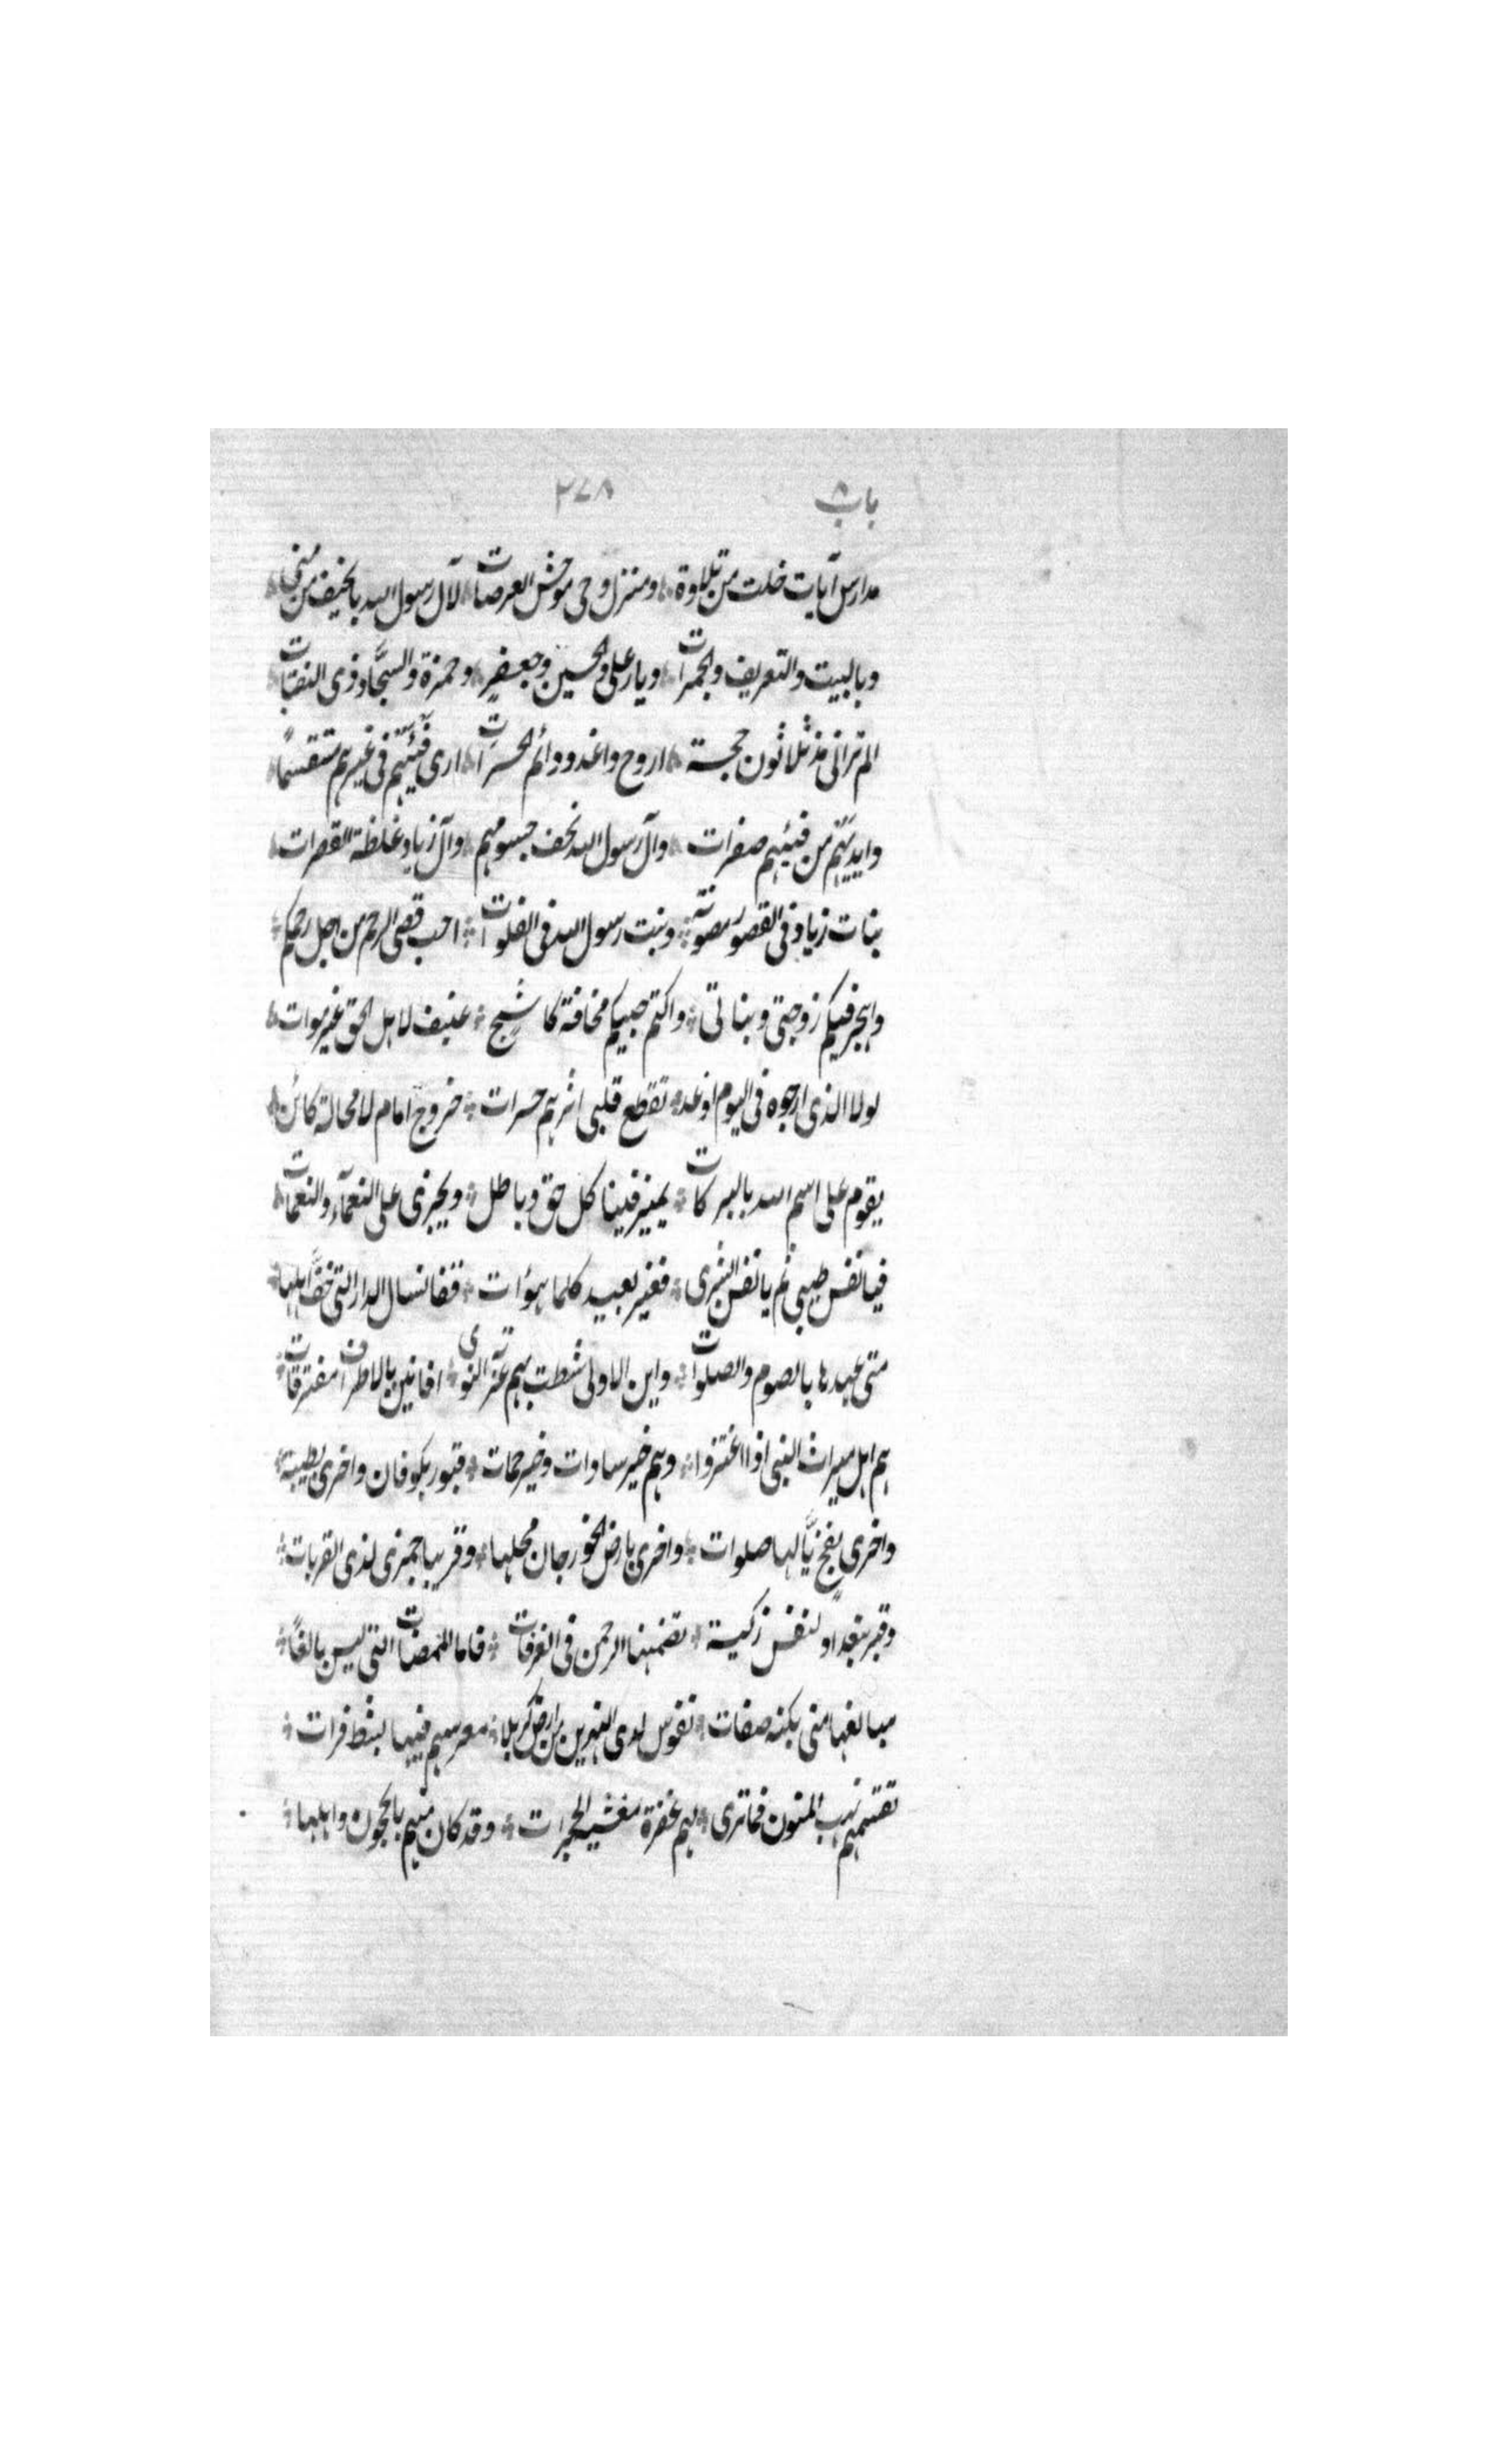 باب ٨ ٢٧٨
مدارس آیات خلت من تلاوة * ومنزل وحی موحش العرصات * لآل رسول الله بالخیف من منی *
وبالبیت والتعریف والجمرات * ودیار علی والحسین وجعفر * وحمزة والسجّاد ذی الثفنات *
الم ترانی مذ ثلاثون حجة * اروح واغدو ودائم الحسرات * اری فَیْئَهم فی غیرهم متقسمًا *
وایدیهم من فیئهم صفرات * وآل رسول الله نحف جسومهم * وآل زیاد غلظة القصرات *
بنات زیاد فی القصور مصونة * وبنت رسول الله فی الفلوات * احب قصی الرحم من اجل رحمکم *
واهجر فیکم زوجتی وبناتی * واکتم حبیکم مخافة کاشح * عنیف لاهل الحق غیر موات *
لولا الذی ارجوه فی الیوم او غد * تقطع قلبی اثرهم حسرات * خروج امام لا محالة کائن *
یقوم علی اسم الله بالبرکات * یمیز فینا کل حق وباطل * ویجزی علی النعمآء والنقمات *
فیا نفس طیبی ثم یا نفس ابشری * فغیر بعید کلما هوآت * قفا نسال الدار التی خفّ اهلها *
متی عهدها بالصوم والصلوات * واین الاولی شطت بهم غربة النوی * افانین بالاطراف مفترقات *
هم اهل میراث النبی اذا اعتزوا * وهم خیر سادات وخیر حمات * قبور بکوفان واخری بطیبة *
واخری بفخ یّالها صلوات * واخری بارض الخورجان محلها * وقبر بباخمری لذی القربات *
وقبر ببغداد لنفس زکیة * تضمنها الرحمن فی الغرفات * فاما الممضات التی لیس بالغًا *
مبالغها منی بکنه صفات * نفوس لدی النهرین من ارض کربلا * معرسهم فیها بشط فرات *
تقسمهم نهب المنون فما تری * لهم عفرة مغشیه الحجرات * وقد کان منهم بالحجون واهلها *